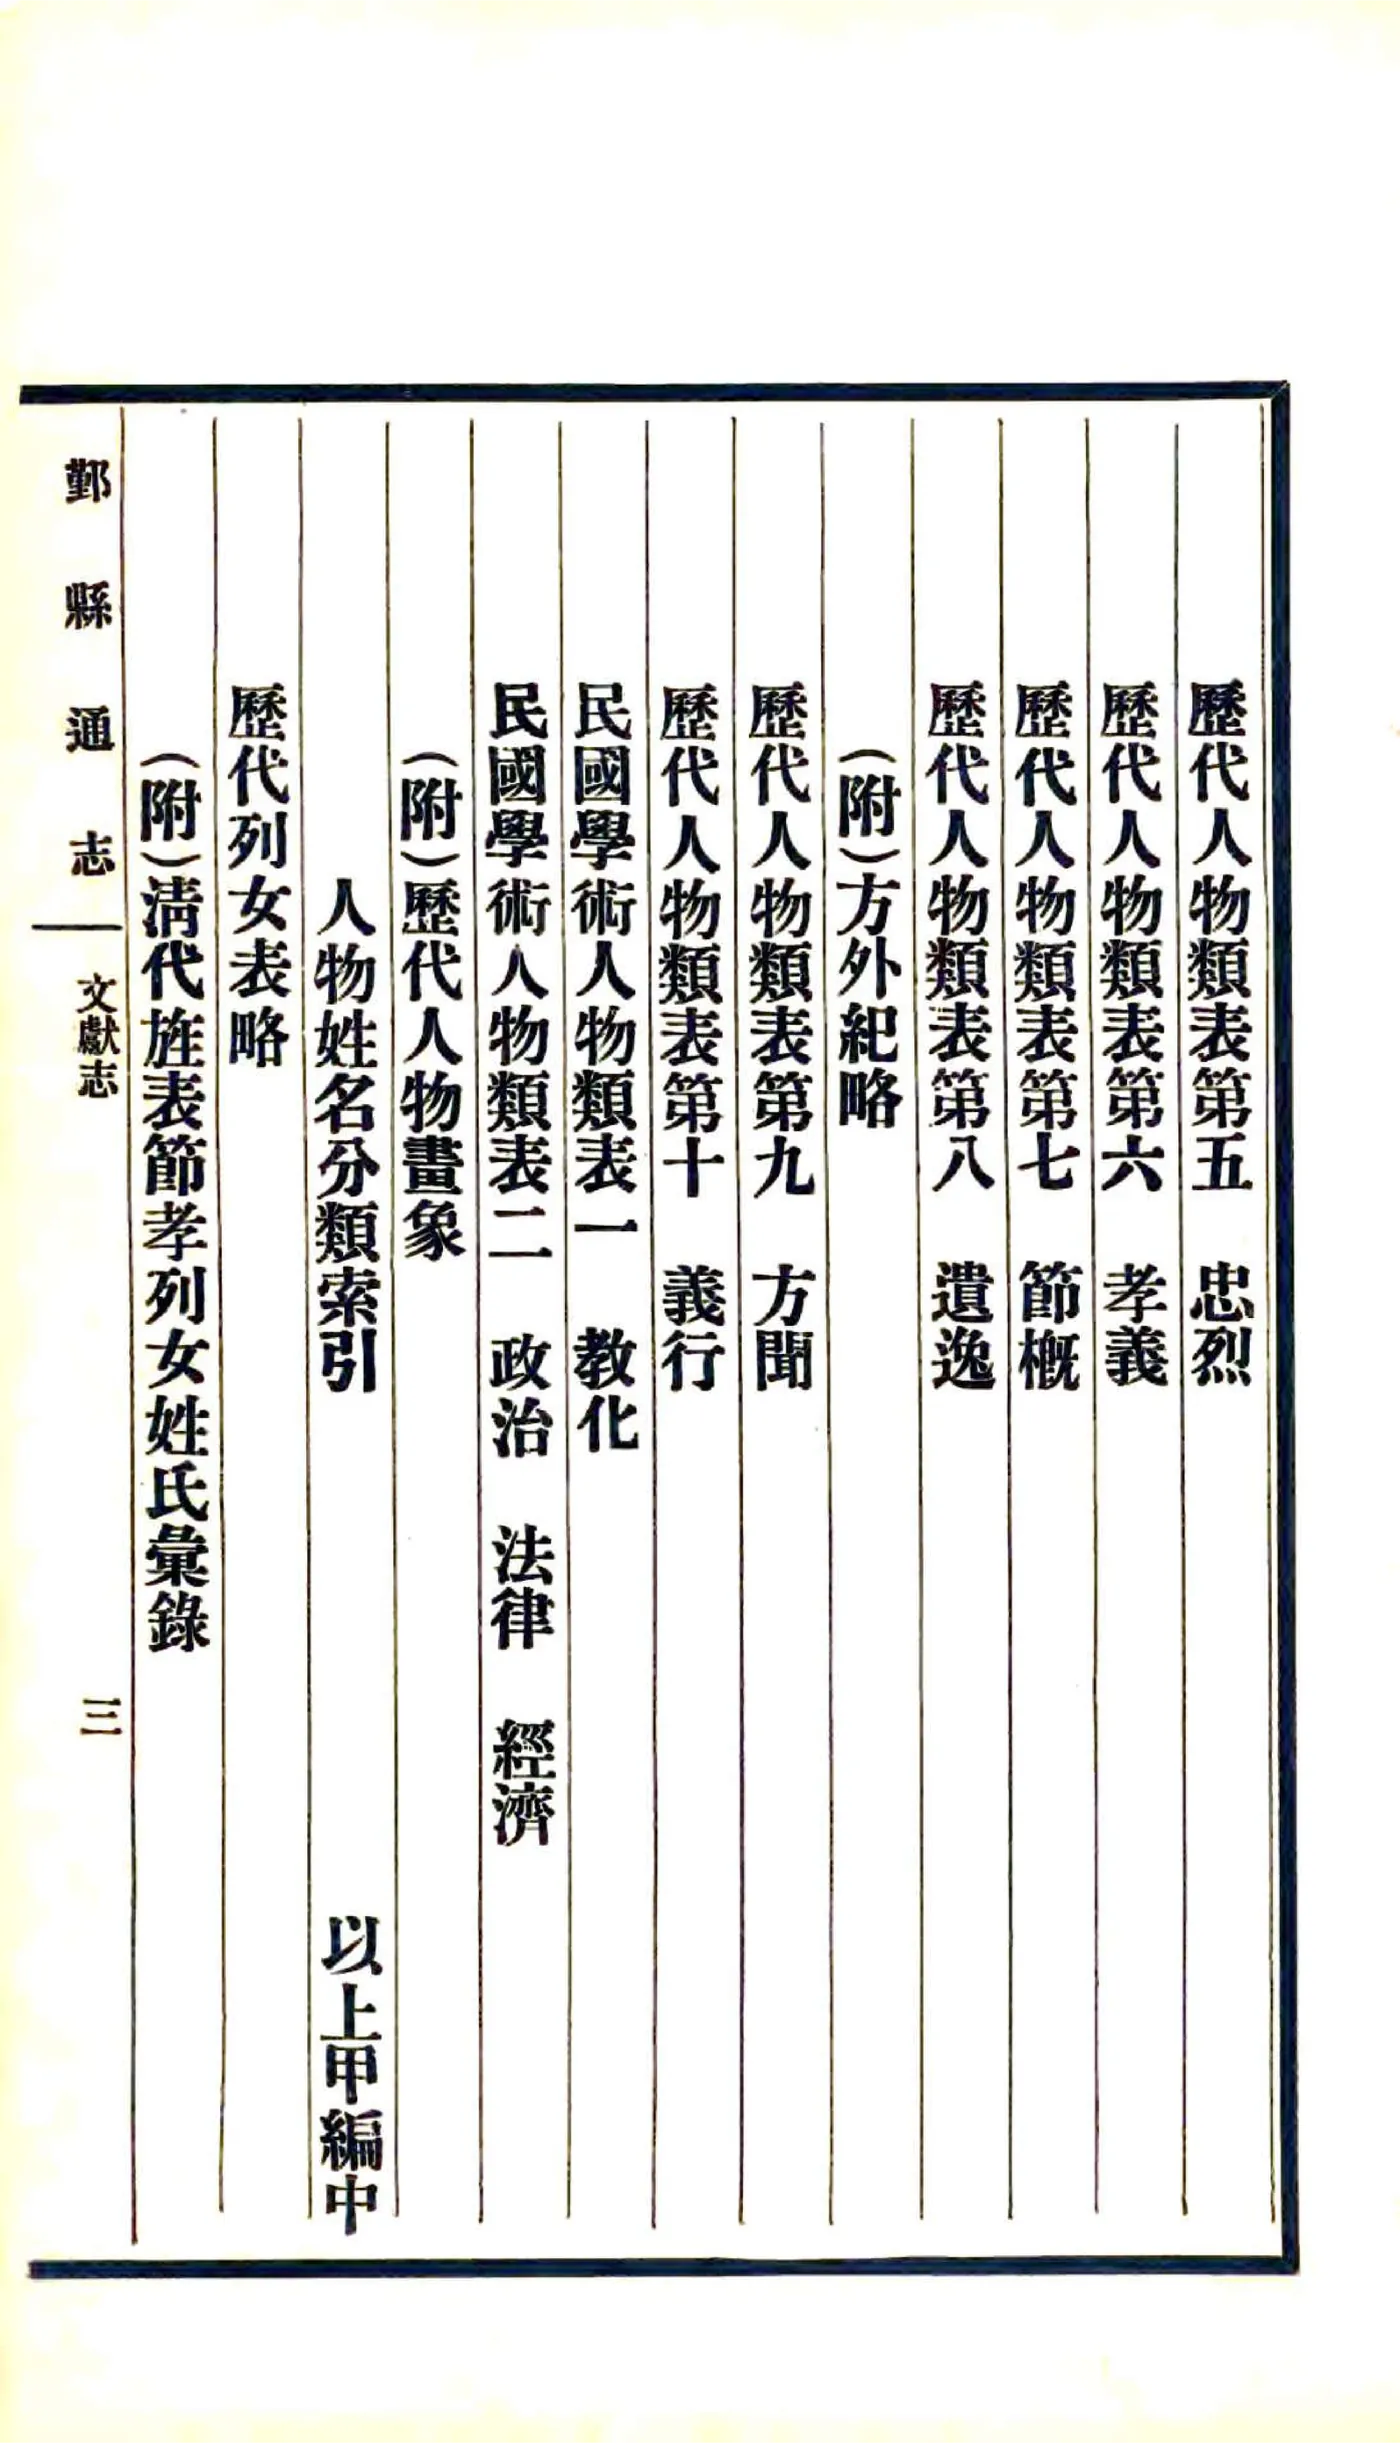 歷代人物類表第五　忠烈
歷代人物類表第六　孝義
歷代人物類表第七　節概
歷代人物類表第八　遺逸
（附）方外紀略
歷代人物類表第九　方聞
歷代人物類表第十　義行
民國學術人物類表一　教化
民國學術人物類表二　政治　法律　經濟
（附）歷代人物畫象
人物姓名分類索引　以上甲編中
歷代列女表略
（附）清代旌表節孝列女姓氏彙錄
鄞縣通志　文獻志　三